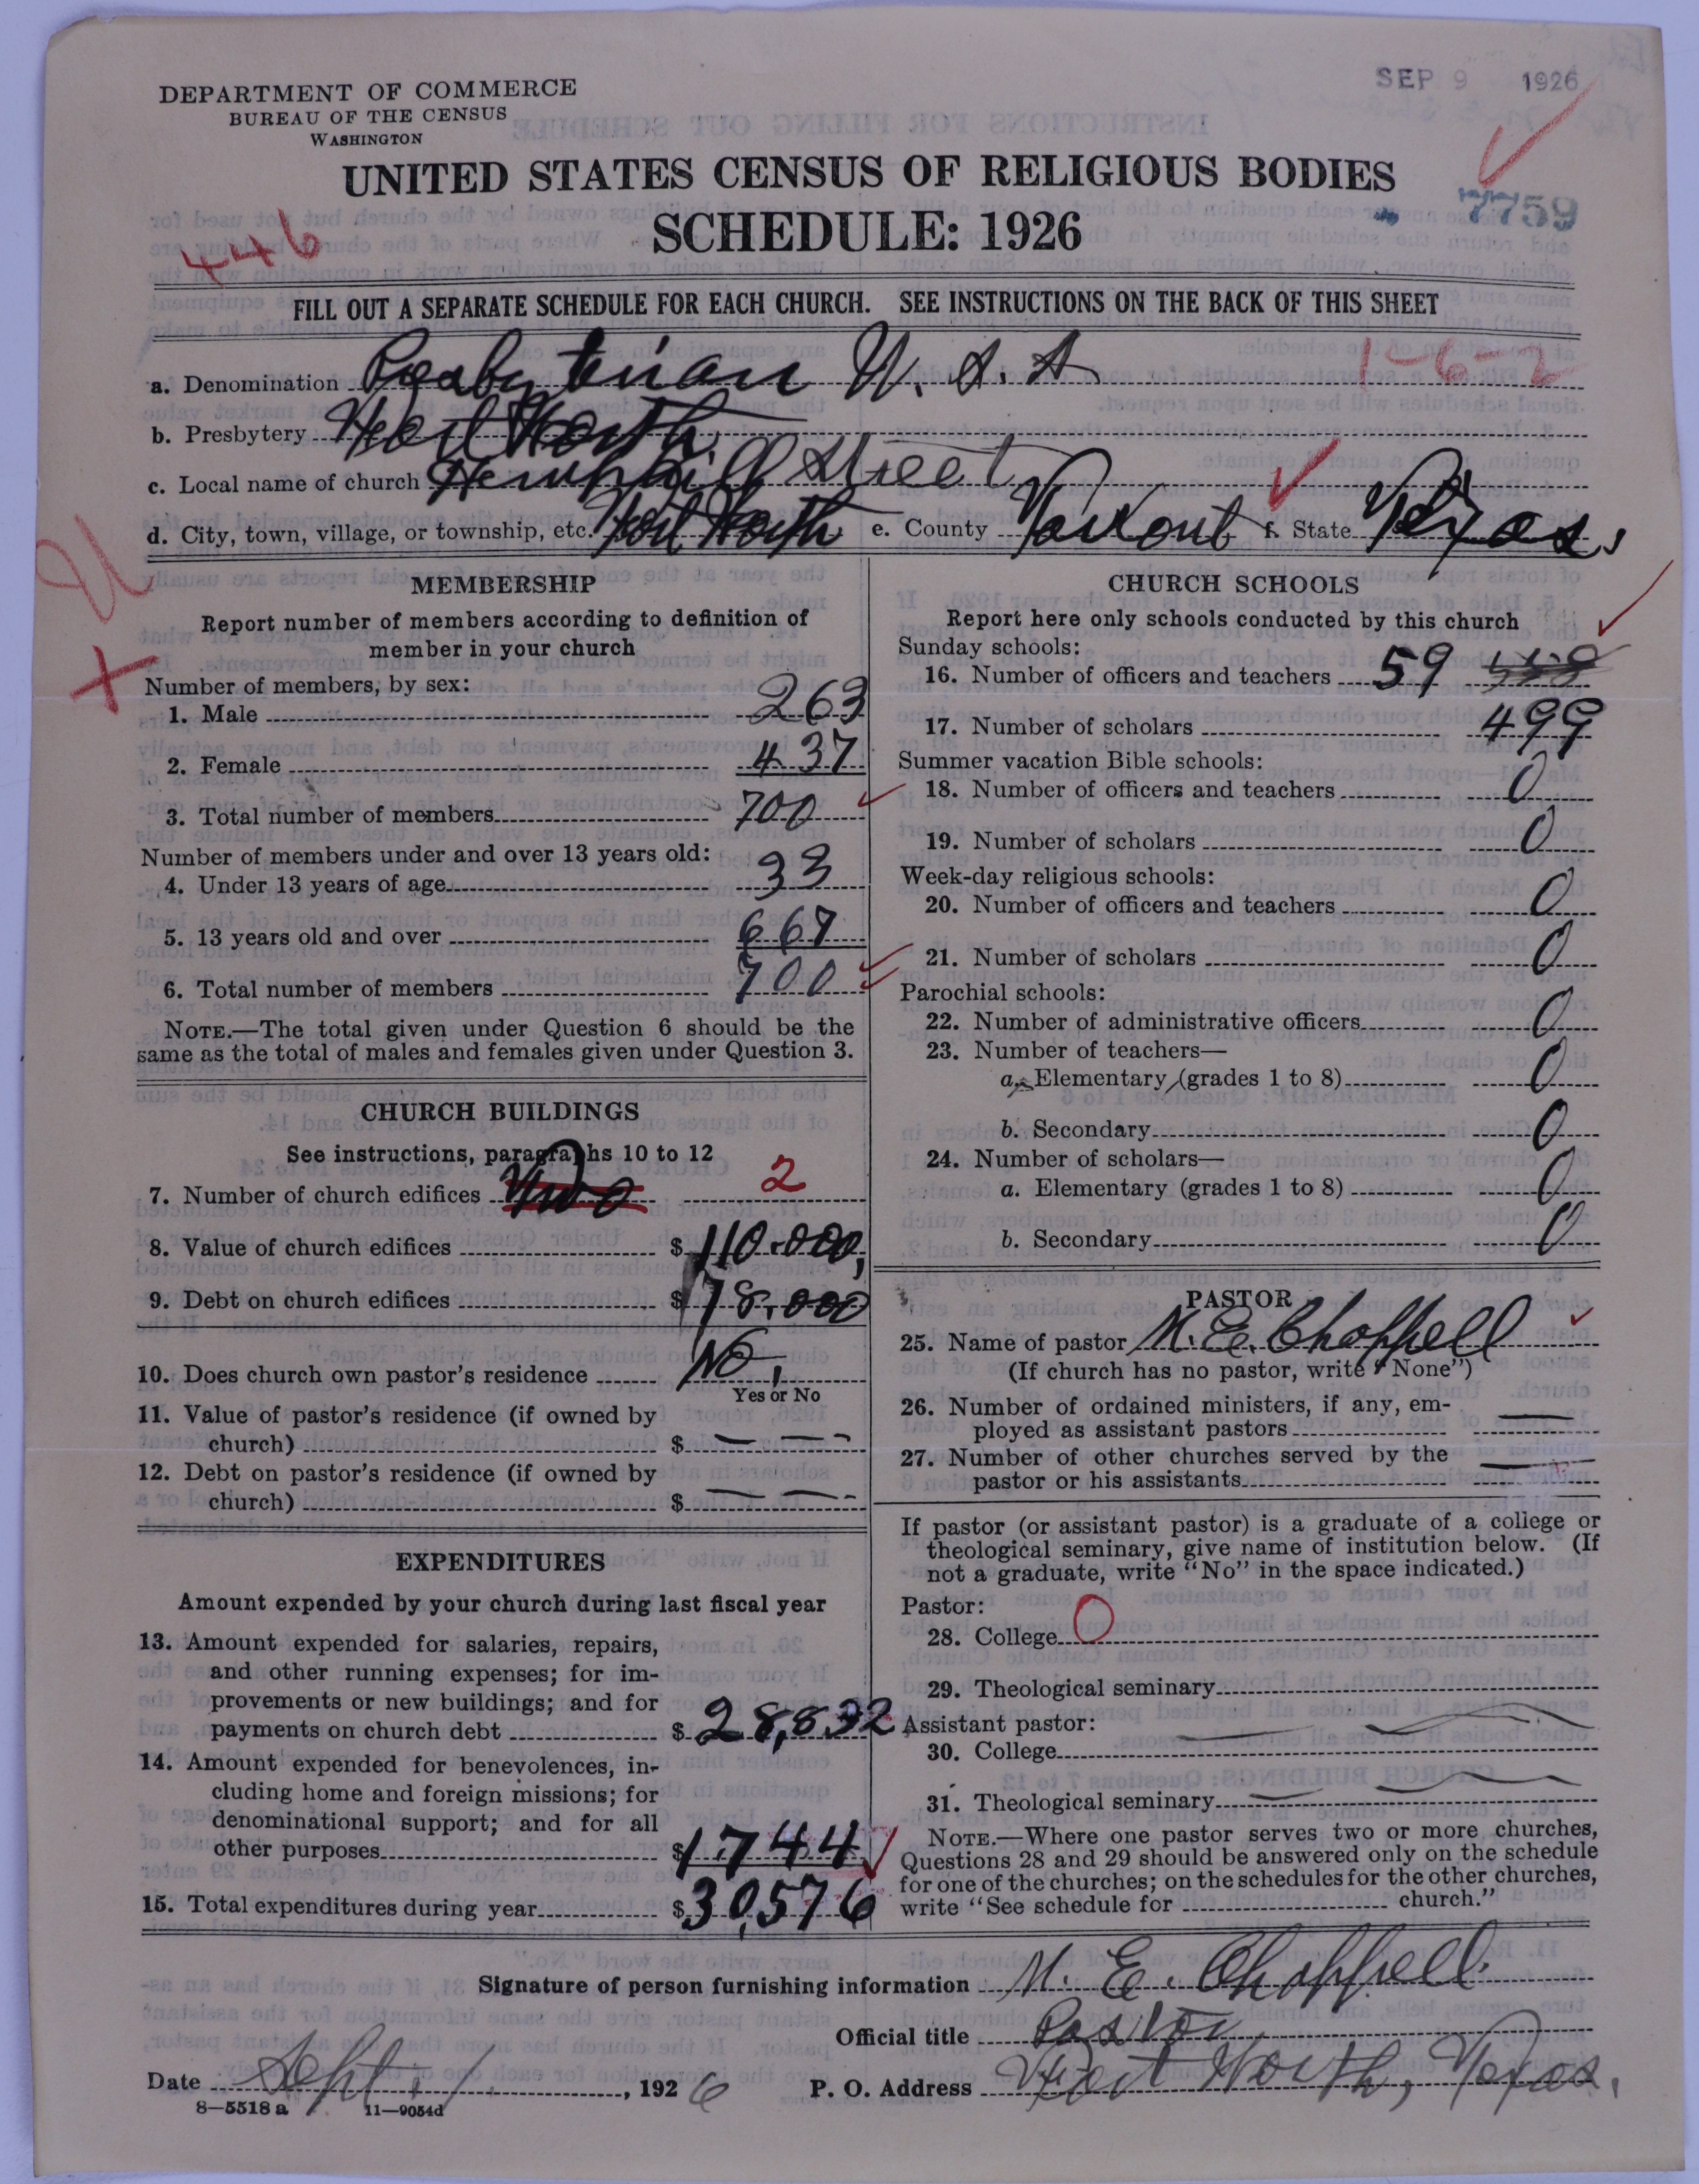 SEP 9 1926
DEPARTMENT OF COMMERCE
BUREAU OF THE CENSUS
WASHINGTON
UNITED STATES CENSUS OF RELIGIOUS BODIES
SCHEDULE: 1926
7759
446
FILL OUT A SEPARATE SCHEDULE FOR EACH CHURCH. SEE INSTRUCTIONS ON THE BACK OF THIS SHEET
a. Denomination Presbyterian U. S. A 1-6-2
b. Presbytery Fort Worth
c. Local name of church Hemphill Street
d. City, town, village, or township, etc. Fort Worth e. County Tarrant f. State Texas.
MEMBERSHIP
Report number of members according to definition of
member in your church
Number of members, by sex:
1. Male 263
2. Female 437
3. Total number of members 700
Number of members under and over 13 years old:
4. Under 13 years of age 33
5. 13 years old and over 667
6. Total number of members 700
NOTE.—The total given under Question 6 should be the
same as the total of males and females given under Question 3.
CHURCH BUILDINGS
See instructions, paragraphs 10 to 12
7. Number of church edifices Two 2
8. Value of church edifices $110.000,
9. Debt on church edifices $78,000
10. Does church own pastor's residence No,
Yes or No
11. Value of pastor's residence (if owned by
church) $ — — -
12. Debt on pastor's residence (if owned by
church) $ — — —
EXPENDITURES
Amount expended by your church during last fiscal year
13. Amount expended for salaries, repairs,
and other running expenses; for im-
provements or new buildings; and for
payments on church debt $28,832
14. Amount expended for benevolences, in-
cluding home and foreign missions; for
denominational support; and for all
other purposes $1744
15. Total expenditures during year $30,576
CHURCH SCHOOLS
Report here only schools conducted by this church
Sunday schools:
16. Number of officers and teachers 59
17. Number of scholars 499
Summer vacation Bible schools:
18. Number of officers and teachers 0
19. Number of scholars 0
Week-day religious schools:
20. Number of officers and teachers 0
21. Number of scholars 0
Parochial schools:
22. Number of administrative officers 0
23. Number of teachers—
a. Elementary (grades 1 to 8) 0
b. Secondary 0
24. Number of scholars—
a. Elementary (grades 1 to 8) 0
b. Secondary 0
PASTOR
25. Name of pastor M. E. Chappell
(If church has no pastor, write "None")
26. Number of ordained ministers, if any, em-
ployed as assistant pastors —
27. Number of other churches served by the
pastor or his assistants —
If pastor (or assistant pastor) is a graduate of a college or
theological seminary, give name of institution below. (If
not a graduate, write "No" in the space indicated.)
Pastor:
28. College O
29. Theological seminary
Assistant pastor:
30. College
31. Theological seminary
NOTE.—Where one pastor serves two or more churches,
Questions 28 and 29 should be answered only on the schedule
for one of the churches; on the schedules for the other churches,
write "See schedule for church."
Signature of person furnishing information M. E. Chappell.
Official title Pastor
Date Sept. 1, 1926 P. O. Address Fort Worth, Texas.
8—5518 a 11—9054d